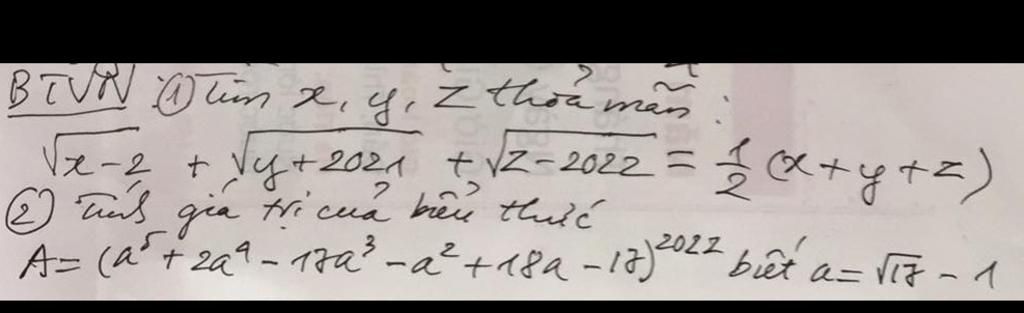 BTVN : ① Tìm x, y, z thoả mãn :
√x-2 + √y+2021 + √z-2022 = 1/2 (x+y+z)
② Tính giá trị của biểu thức
A = (a⁵ + 2a⁴ - 17a³ - a² + 18a - 17)²⁰²² biết a = √17 - 1